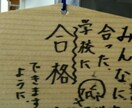 みんなに
合った
学校に
合格
できます
ように。